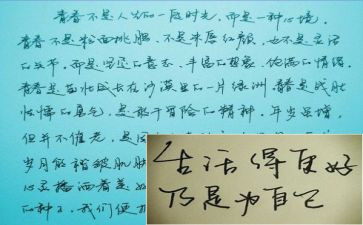 青春不是人生的一段时光，而是一种心境，
青春不是粉面桃腮，不是朱唇红颜，也不是灵活
的关节，而是坚定的意志、丰富的想象、饱满的情绪。
青春是茁壮成长在沙漠里的一片绿洲，青春是战胜
怯懦的勇气，是敢于冒险的精神。年岁虽增，
但并不催老，是因
岁月能褶皱肌肤
心灵播洒着
的种子，我们便
生活得更好
乃是为自己